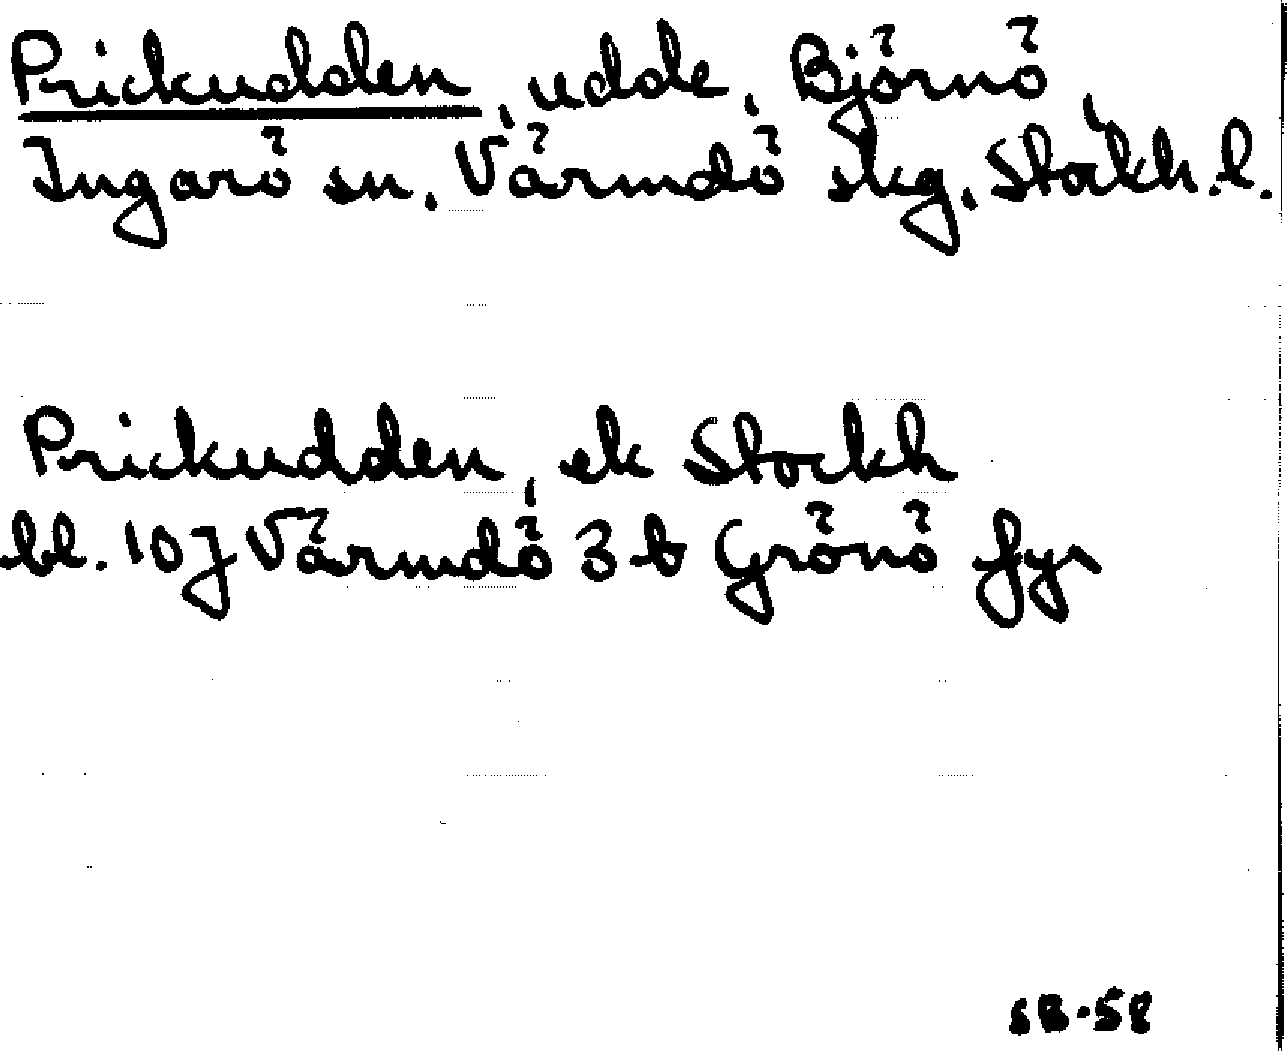 Prickudden, udde, Björnö,
Ingarö sn, Värmdö skg, Stockh.l.
Prickudden, ek Stockh
bl. 10J Värmdö 3 b Grönö fyr
SB-58